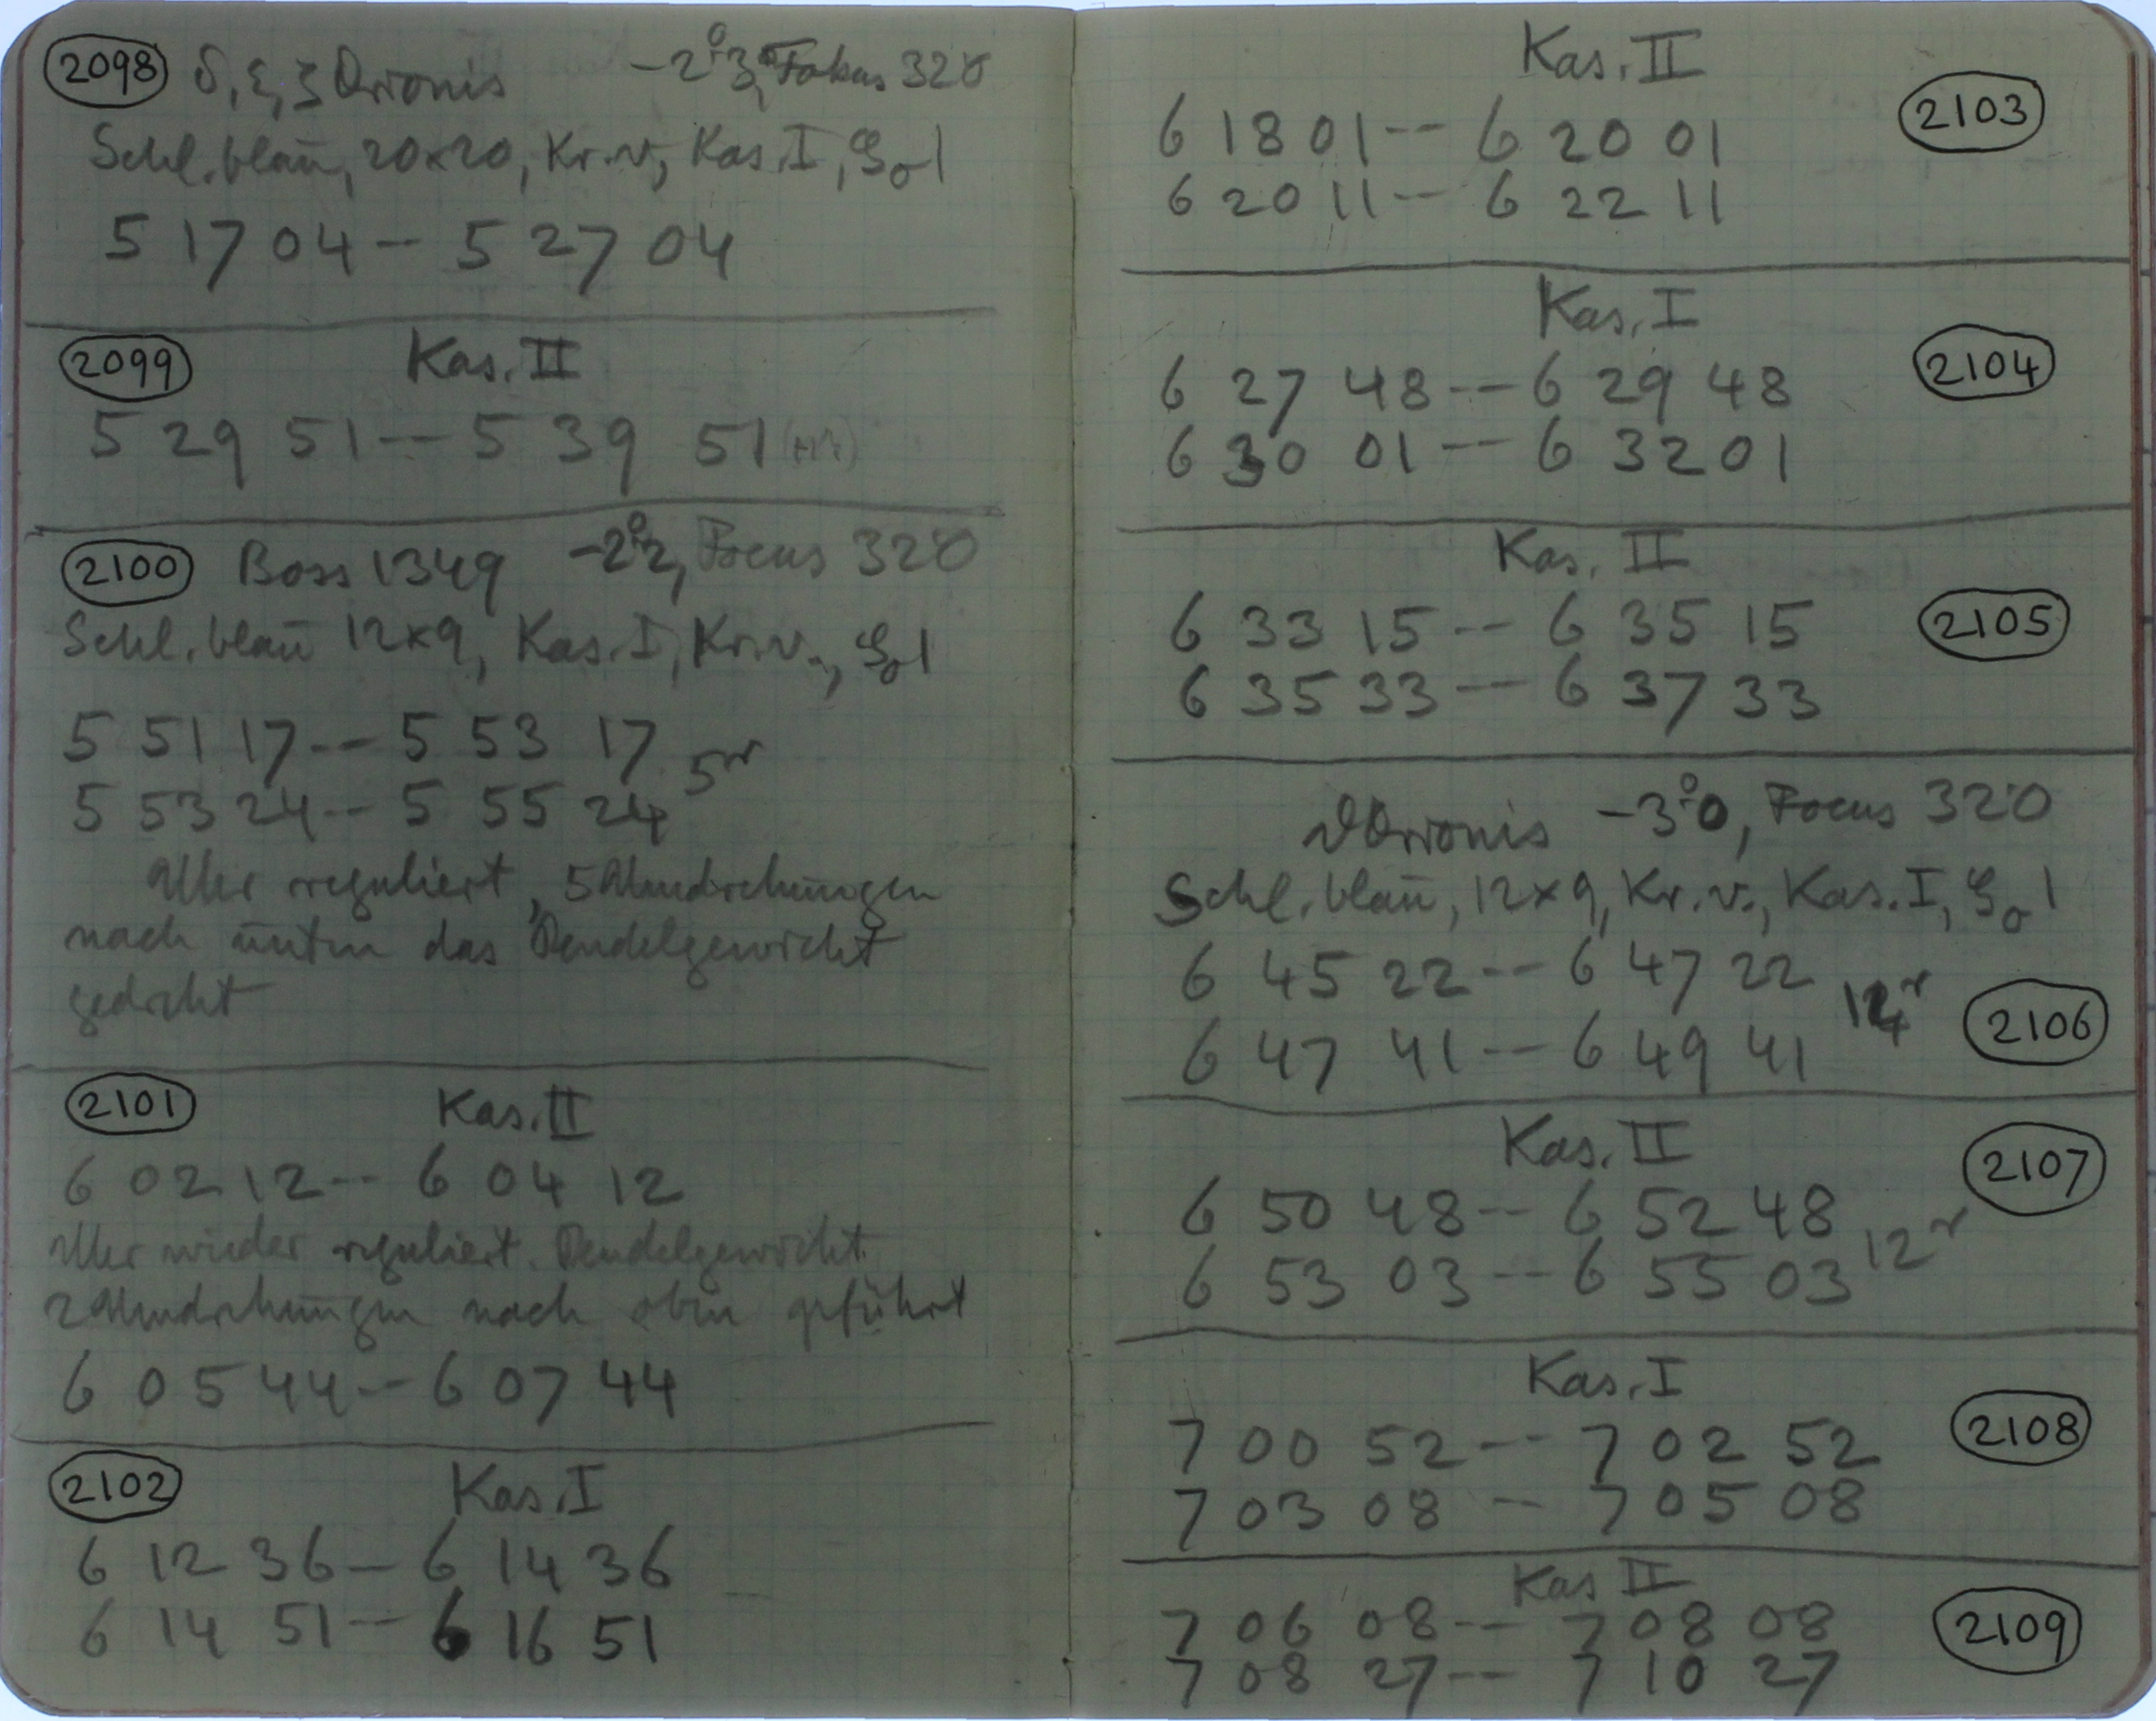 2098 δ, ε, ζ Orionis -2°3, Fokus 32.0
Schl. blau, 20x20, Kr. v., Kas. I, 1
5 17 04 - 5 27 04
2099 Kas. II
5 29 51 -- 5 39 51
2100 Boss 1349 -2°2, Focus 32.0
Schl. blau 12x9, Kas. I, Kr. v., 1
5 51 17 -- 5 53 17
5 53 24 -- 5 55 24
Uhr reguliert, 5 Umdrehungen
nach unten das Pendelgewicht
gedreht
2101 Kas. II
6 02 12 -- 6 04 12
Uhr wieder reguliert. Pendelgewicht
2 Umdrehungen nach oben geführt
6 05 44 -- 6 07 44
2102 Kas. I
6 12 36 - 6 14 36
6 14 51 -- 6 16 51
Kas. II
6 18 01 -- 6 20 01 2103
6 20 11 -- 6 22 11
Kas. I
6 27 48 -- 6 29 48 2104
6 30 01 -- 6 32 01
Kas. II
6 33 15 -- 6 35 15 2105
6 35 33 -- 6 37 33
Orionis -3°0, Focus 32.0
Schl. blau, 12x9, Kr. v., Kas. I, 1
6 45 22 -- 6 47 22
6 47 41 -- 6 49 41 2106
Kas. II 2107
6 50 48 -- 6 52 48
6 53 03 -- 6 55 03
Kas. I
7 00 52 -- 7 02 52 2108
7 03 08 -- 7 05 08
Kas II
7 06 08 -- 7 08 08 2109
7 08 27 -- 7 10 27